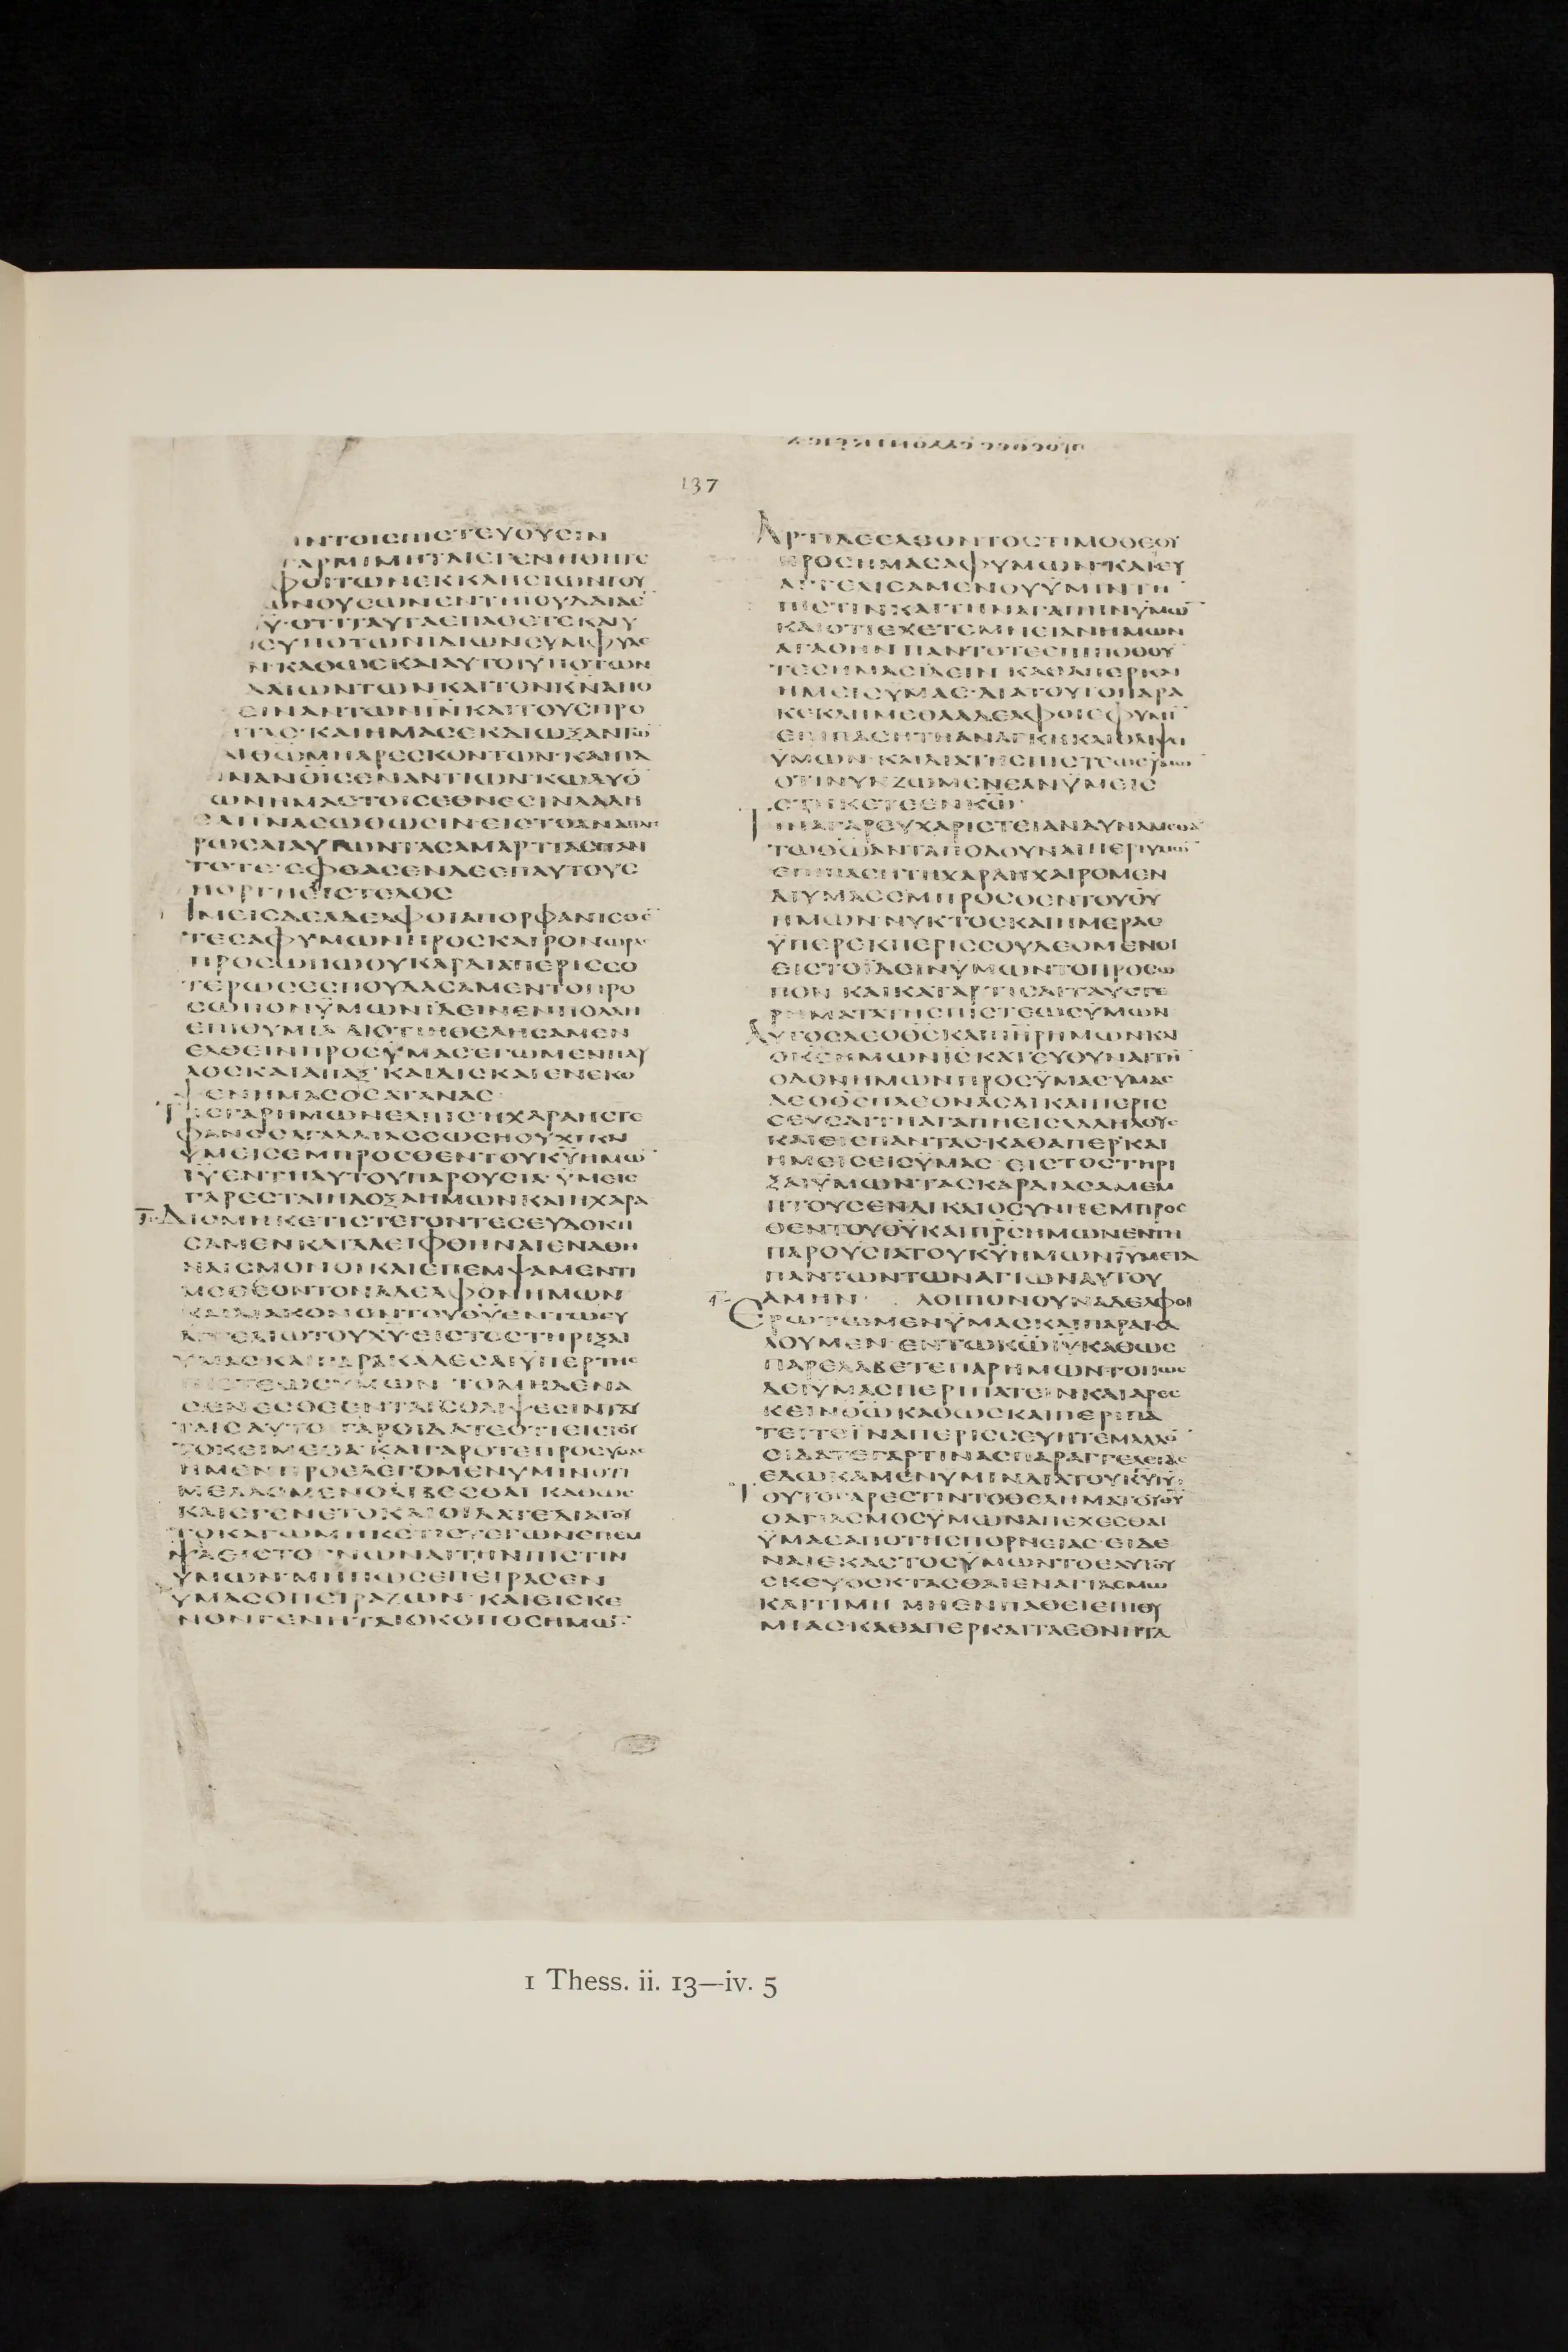 137
ΙΝΤΟΙϹΠΙϹΤΕΥΟΥϹΙΝ
ΓΑΡΜΙΜΗΤΑΙΕΓΕΝΗΘΗΤΕ
ΦΟΙΤΩΝΕΚΚΛΗϹΙΩΝΤΟΥ
ΩΝΟΥϹΩΝΕΝΤΗΙΟΥΔΑΙΑΕ
Υ̅·ΟΤΙΤΑΥΤΑΕΠΑΘΕΤΕΚΑΙΥ
ΕΥΠΟΤΩΝΙΔΙΩΝϹΥΜΦΥΛΕ
Ν·ΚΑΘΩϹΚΑΙΑΥΤΟΙΥΠΟΤΩΝ
ΔΑΙΩΝΤΩΝΚΑΙΤΟΝΚ̅Ν̅ΑΠΟ
ΕΙΝΑΝΤΩΝΙ̅Ν̅ΚΑΙΤΟΥϹΠΡΟ
ΤΑϹ·ΚΑΙΗΜΑϹΕΚΔΙΩΞΑΝΤΩ̅
ΑΙΘ̅Ω̅ΜΗΑΡΕϹΚΟΝΤΩΝ·ΚΑΙΠΑ
ΑΝΟΙϹΕΝΑΝΤΙΩΝ·ΚΩΛΥΟ̅
ΩΝΗΜΑϹΤΟΙϹΕΘΝΕϹΙΝΛΑΛΗ
ϹΑΙΙΝΑϹΩΘΩϹΙΝ·ΕΙϹΤΟΑΝΑΠΛΗ
ΡΩϹΑΙΑΥΤΩΝΤΑϹΑΜΑΡΤΙΑϹΠΑΝ
ΤΟΤΕ·ΕΦΘΑϹΕΝΔΕΕΠΑΥΤΟΥϹ
ΗΟΡΓΗΕΙϹΤΕΛΟϹ
ΗΜΕΙϹΔΕΑΔΕΛΦΟΙΑΠΟΡΦΑΝΙϹΘΕ̅
ΤΕϹΑΦΥΜΩΝΠΡΟϹΚΑΙΡΟΝΩΡΑϹ
ΠΡΟϹΩΠΩΟΥΚΑΡΔΙΑΠΕΡΙϹϹΟ
ΤΕΡΩϹΕϹΠΟΥΔΑϹΑΜΕΝΤΟΠΡΟ
ϹΩΠΟΝΫΜΩΝΪΔΕΙΝΕΝΠΟΛΛΗ
ΕΠΙΘΥΜΙΑ ΔΙΟΤΙΗΘΕΛΗϹΑΜΕΝ
ΕΛΘΕΙΝΠΡΟϹΫΜΑϹ·ΕΓΩΜΕΝΠΑΥ
ΛΟϹΚΑΙΑΠΑΞ ΚΑΙΔΙϹΚΑΙΕΝΕΚΟ
ΨΕΝΗΜΑϹΟϹΑΤΑΝΑϹ
ΤΙϹΓΑΡΗΜΩΝΕΛΠΙϹ·ΗΧΑΡΑΗϹΤΕ
ΦΑΝΟϹΑΓΑΛΛΙΑϹΕΩϹΗΟΥΧΙΚΑΙ
ΫΜΕΙϹΕΜΠΡΟϹΘΕΝΤΟΥΚ̅Υ̅ΗΜΩ̅
Ι̅Υ̅ΕΝΤΗΑΥΤΟΥΠΑΡΟΥϹΙΑ·ΫΜΕΙϹ
ΓΑΡΕϹΤΑΙΗΔΟΞΑΗΜΩΝΚΑΙΗΧΑΡΑ
ΔΙΟΜΗΚΕΤΙϹΤΕΓΟΝΤΕϹΕΥΔΟΚΗ
ϹΑΜΕΝΚΑΤΑΛΕΙΦΘΗΝΑΙΕΝΑΘΗ
ΝΑΙϹΜΟΝΟΙΚΑΙΕΠΕΜΨΑΜΕΝΤΙ
ΜΟΘΕΟΝΤΟΝΑΔΕΛΦΟΝΗΜΩΝ
ΚΑΙΔΙΑΚΟΝΟΝΤΟΥΘ̅Υ̅ΕΝΤΩΕΥ
ΑΓΓΕΛΙΩΤΟΥΧ̅Υ̅·ΕΙϹΤΟϹΤΗΡΙΞΑΙ
ΥΜΑϹΚΑΙΠΑΡΑΚΑΛΕϹΑΙΥΠΕΡΤΗϹ
ΠΙϹΤΕΩϹΥΜΩΝ ΤΟΜΗΔΕΝΑ
ϹΕΝΕϹΘΕΕΝΤΑΙϹΘΛΙΨΕϹΙΝΤΑΥ
ΤΑΙϹΑΥΤΟΙ ΓΑΡΟΙΔΑΤΕΟΤΙΕΙϹΤΟΥ
ΤΟΚΕΙΜΕΘΑ ΚΑΙΓΑΡΟΤΕΠΡΟϹΥΜΑϹ
ΗΜΕΝΠΡΟΕΛΕΓΟΜΕΝΥΜΙΝΟΤΙ
ΜΕΛΛΟΜΕΝΘΛΙΒΕϹΘΑΙ ΚΑΘΩϹ
ΚΑΙΕΓΕΝΕΤΟΚΑΙΟΙΔΑΤΕΔΙΑΤΟΥ
ΤΟΚΑΓΩΜΗΚΕΤΙϹΤΕΓΩΝΕΠΕΜ
ΨΑΕΙϹΤΟΓΝΩΝΑΙΤΗΝΠΙϹΤΙΝ
ΥΜΩΝ·ΜΗΠΩϹΕΠΕΙΡΑϹΕΝ
ΥΜΑϹΟΠΕΙΡΑΖΩΝ·ΚΑΙΕΙϹΚΕ
ΝΟΝΓΕΝΗΤΑΙΟΚΟΠΟϹΗΜΩ̅
ΑΡΤΙΔΕΕΛΘΟΝΤΟϹΤΙΜΟΘΕΟΥ
ΠΡΟϹΗΜΑϹΑΦΥΜΩΝ·ΚΑΙΕΥ
ΑΓΓΕΛΙϹΑΜΕΝΟΥΫΜΙΝΤΗ̅
ΠΙϹΤΙΝΚΑΙΤΗΝΑΓΑΠΗΝΥΜΩ̅
ΚΑΙΟΤΙΕΧΕΤΕΜΝΕΙΑΝΗΜΩΝ
ΑΓΑΘΗΝΠΑΝΤΟΤΕΕΠΙΠΟΘΟΥ̅
ΤΕϹΗΜΑϹΪΔΕΙΝ ΚΑΘΑΠΕΡΚΑΙ
ΗΜΕΙϹΥΜΑϹ·ΔΙΑΤΟΥΤΟΠΑΡΑ
ΚΕΚΛΗΜΕΘΑΑΔΕΛΦΟΙΕΦΥΜΙ̅
ΕΠΙΠΑϹΗΤΗΑΝΑΓΚΗΚΑΙΘΛΙΨΙ
ΫΜΩΝ·ΚΑΙΔΙΑΤΗϹΠΙϹΤΕΩϹΥΜΩΝ
ΟΤΙΝΥΝΖΩΜΕΝΕΑΝΫΜΕΙϹ
ϹΤΗΚΕΤΕΕΝΚ̅Ω̅·
ΤΙΝΑΓΑΡΕΥΧΑΡΙϹΤΕΙΑΝΔΥΝΑΜΕΘΑ
ΤΩΘ̅Ω̅ΑΝΤΑΠΟΔΟΥΝΑΙΠΕΡΙΥΜΩ̅
ΕΠΙΠΑϹΗΤΗΧΑΡΑΗΧΑΙΡΟΜΕΝ
ΔΙΥΜΑϹΕΜΠΡΟϹΘΕΝΤΟΥΘ̅Υ̅
ΗΜΩΝ·ΝΥΚΤΟϹΚΑΙΗΜΕΡΑϹ
ΫΠΕΡΕΚΠΕΡΙϹϹΟΥΔΕΟΜΕΝΟΙ
ΕΙϹΤΟΪΔΕΙΝΥΜΩΝΤΟΠΡΟϹΩ
ΠΟΝ ΚΑΙΚΑΤΑΡΤΙϹΑΙΤΑΥϹΤΕ
ΡΗΜΑΤΑΤΗϹΠΙϹΤΕΩϹΫΜΩΝ
ΑΥΤΟϹΔΕΟΘ̅Ϲ̅ΚΑΙΠ̅Η̅Ρ̅ΗΜΩΝΚΑΙ
ΟΚ̅Ϲ̅ΗΜΩΝΙ̅Ϲ̅ΚΑΤΕΥΘΥΝΑΙΤΗ̅
ΟΔΟΝΗΜΩΝΠΡΟϹΫΜΑϹ·ΥΜΑϹ
ΔΕΟΘ̅Ϲ̅ΠΛΕΟΝΑϹΑΙΚΑΙΠΕΡΙϹ
ϹΕΥϹΑΙΤΗΑΓΑΠΗΕΙϹΑΛΛΗΛΟΥϹ
ΚΑΙΕΙϹΠΑΝΤΑϹ·ΚΑΘΑΠΕΡΚΑΙ
ΗΜΕΙϹΕΙϹΥΜΑϹ ΕΙϹΤΟϹΤΗΡΙ
ΞΑΙΫΜΩΝΤΑϹΚΑΡΔΙΑϹΑΜΕΜ
ΠΤΟΥϹΕΝΑΓΙΩϹΥΝΗΕΜΠΡΟϹ
ΘΕΝΤΟΥΘ̅Υ̅ΚΑΙΠ̅Ρ̅Ϲ̅ΗΜΩΝΕΝΤΗ
ΠΑΡΟΥϹΙΑΤΟΥΚ̅Υ̅ΗΜΩΝΙ̅Υ̅ΜΕΤΑ
ΠΑΝΤΩΝΤΩΝΑΓΙΩΝΑΥΤΟΥ
ΑΜΗΝ· ΛΟΙΠΟΝΟΥΝΑΔΕΛΦΟΙ
ΕΡΩΤΩΜΕΝΫΜΑϹΚΑΙΠΑΡΑΚΑ
ΛΟΥΜΕΝ·ΕΝΤΩΚ̅Ω̅Ι̅Υ̅ΚΑΘΩϹ
ΠΑΡΕΛΑΒΕΤΕΠΑΡΗΜΩΝΤΟΠΩϹ
ΔΕΙΫΜΑϹΠΕΡΙΠΑΤΕΙΝΚΑΙΑΡΕϹ
ΚΕΙΝΘ̅Ω̅ΚΑΘΩϹΚΑΙΠΕΡΙΠΑ
ΤΕΙΤΕΪΝΑΠΕΡΙϹϹΕΥΗΤΕΜΑΛΛΟ̅
ΟΙΔΑΤΕΓΑΡΤΙΝΑϹΠΑΡΑΓΓΕΛΕΙΑϹ
ΕΔΩΚΑΜΕΝΥΜΙΝΔΙΑΤΟΥΚ̅Υ̅Ι̅Υ̅·
ΤΟΥΤΟΓΑΡΕϹΤΙΝΤΟΘΕΛΗΜΑΤΟΥΘ̅Υ̅
ΟΑΓΙΑϹΜΟϹΥΜΩΝΑΠΕΧΕϹΘΑΙ
ΫΜΑϹΑΠΟΤΗϹΠΟΡΝΕΙΑϹ·ΕΙΔΕ
ΝΑΙΕΚΑϹΤΟϹΫΜΩΝΤΟΕΑΥΤΟΥ
ϹΚΕΥΟϹΚΤΑϹΘΑΙΕΝΑΓΙΑϹΜΩ
ΚΑΙΤΙΜΗ ΜΗΕΝΠΑΘΕΙΕΠΙΘΥ
ΜΙΑϹ·ΚΑΘΑΠΕΡΚΑΙΤΑΕΘΝΗΤΑ
1 Thess. ii. 13—iv. 5